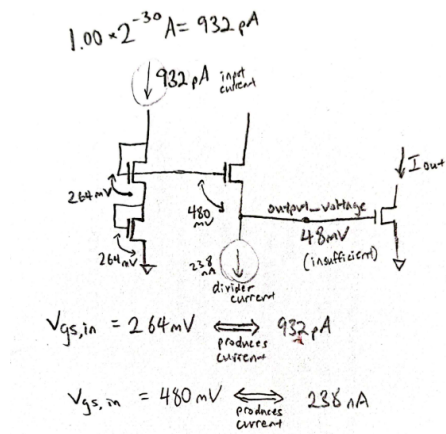 1.00 * 2^-30 A = 932 pA
932 pA input current
264mV
480 mV
264mV
238 nA
divider current
output_voltage
48mV
(insufficient)
I out
Vgs,in = 264mV ⟺ 932 pA
produces current
Vgs,in = 480mV ⟺ 238 nA
produces current